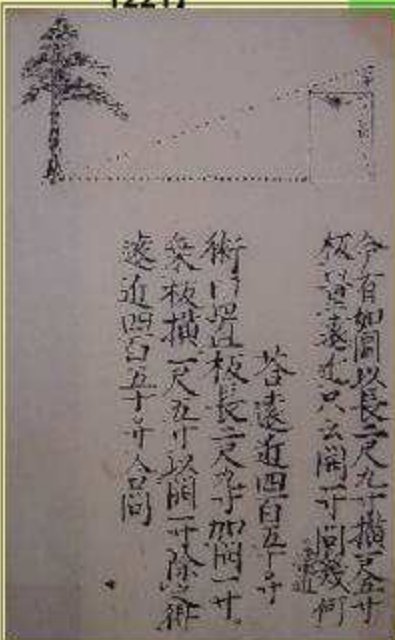 今有如圖以長二尺九寸横一尺五寸
板量遠近只云開一寸問幾何
答遠近四百五十寸
術曰置板長二尺九寸加開一寸
乗板横一尺五寸以開一寸除之得
遠近四百五十寸合問